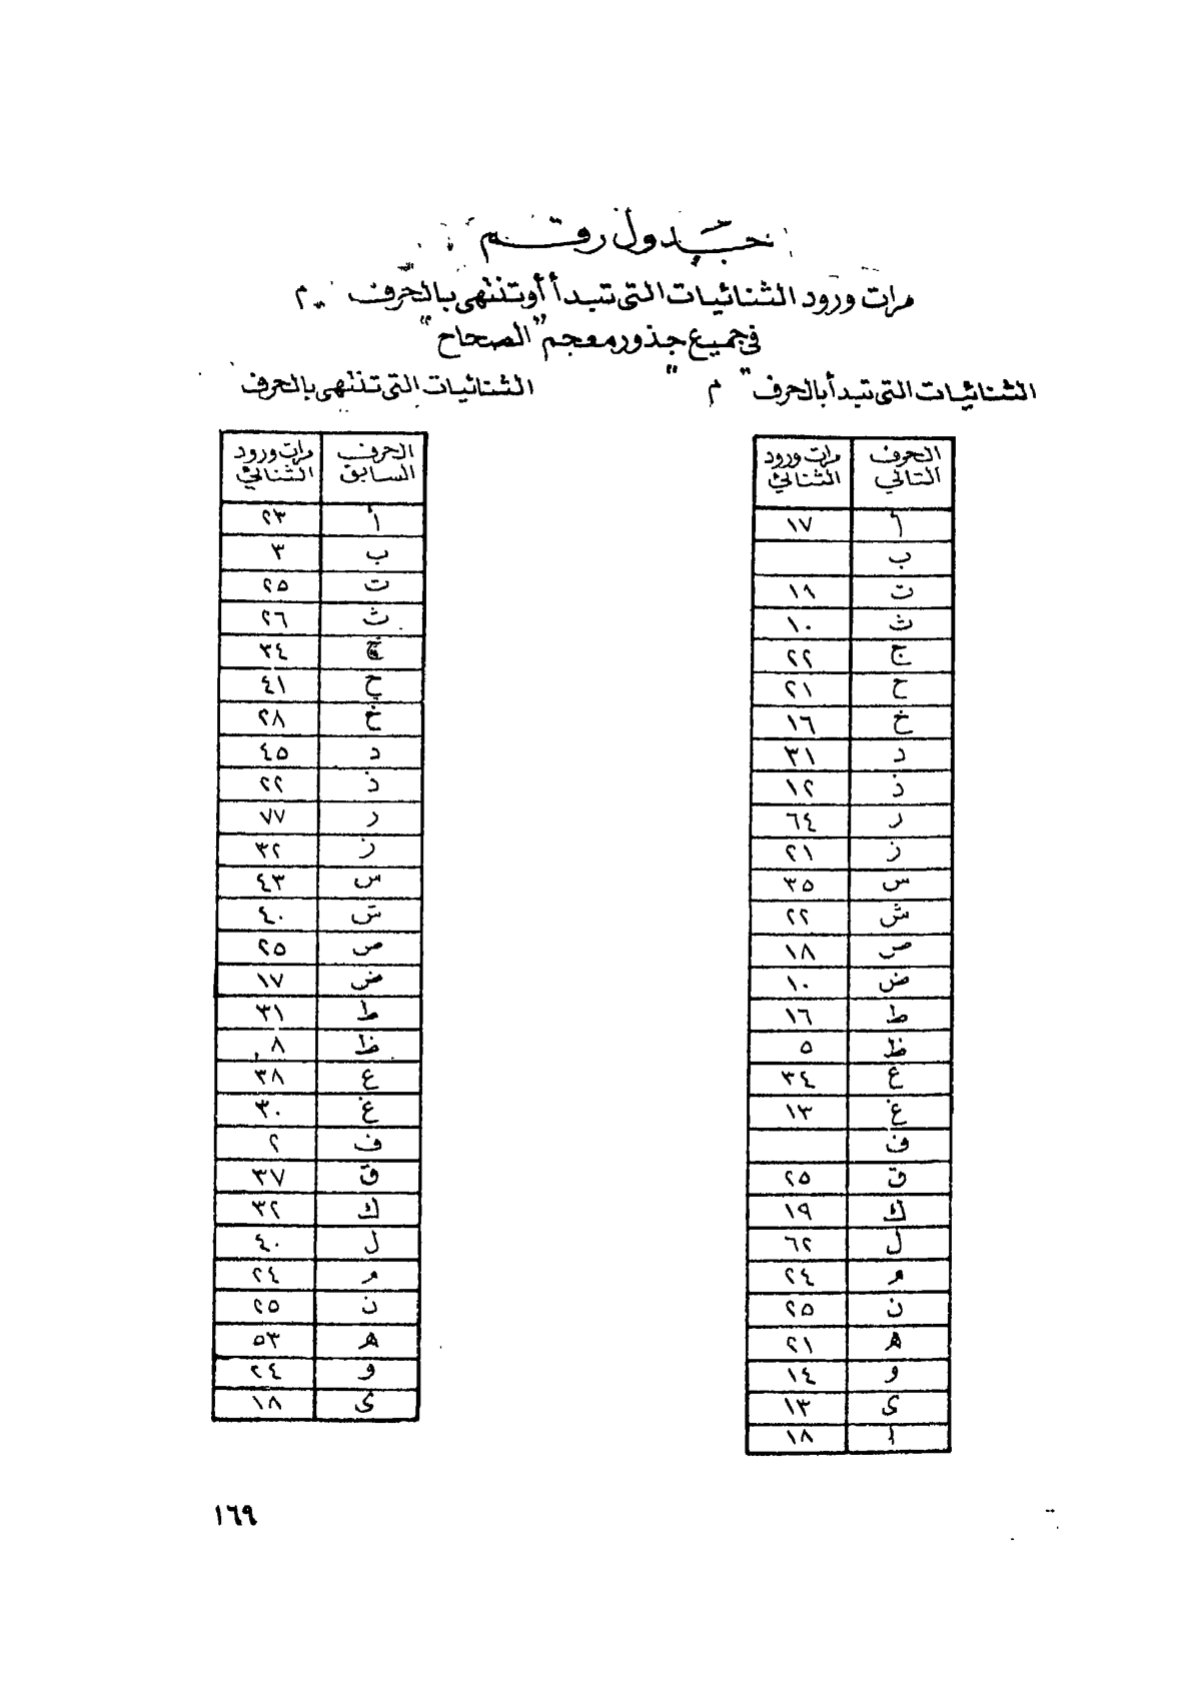 جدول رقم
مرات ورود الثنائيات التى تبدأ أو تنتهى بالحرف " م
فى جميع جذور معجم "الصحاح"
الثنائيات التى تبدأ بالحرف " م "
الحرف التالي | مرات ورود الثنائي
أ | ١٧
ب |
ت | ١٨
ث | ١٠
ج | ٢٢
ح | ٢١
خ | ١٦
د | ٣١
ذ | ١٢
ر | ٦٤
ز | ٢١
س | ٣٥
ش | ٢٢
ص | ١٨
ض | ١٠
ط | ١٦
ظ | ٥
ع | ٣٤
غ | ١٣
ف |
ق | ٢٥
ك | ١٩
ل | ٦٢
م | ٢٤
ن | ٢٥
ه | ٢١
و | ١٤
ى | ١٣
أ | ١٨
الثنائيات التى تنتهى بالحرف
الحرف السابق | مرات ورود الثنائي
أ | ٢٣
ب | ٣
ت | ٢٥
ث | ٢٦
ج | ٣٤
ح | ٤١
خ | ٢٨
د | ٤٥
ذ | ٢٢
ر | ٧٧
ز | ٣٢
س | ٤٣
ش | ٤٠
ص | ٢٥
ض | ١٧
ط | ٣١
ظ | ٨
ع | ٣٨
غ | ٣٠
ف | ٢
ق | ٣٧
ك | ٣٢
ل | ٤٠
م | ٢٤
ن | ٢٥
ه | ٥٣
و | ٢٤
ى | ١٨
١٦٩